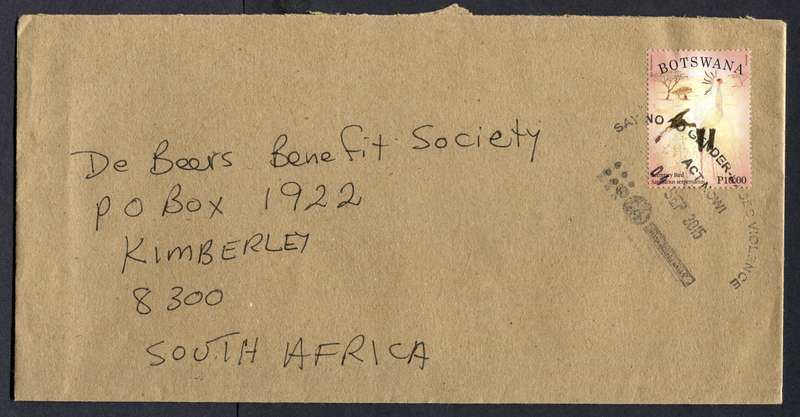 BOTSWANA
SAY NO TO GENDER-BASED VIOLENCE
ACT NOW!
Secretary Bird
P10.00
SEP 2015
De Beers Benefit Society
P O Box 1922
KIMBERLEY
8300
SOUTH AFRICA